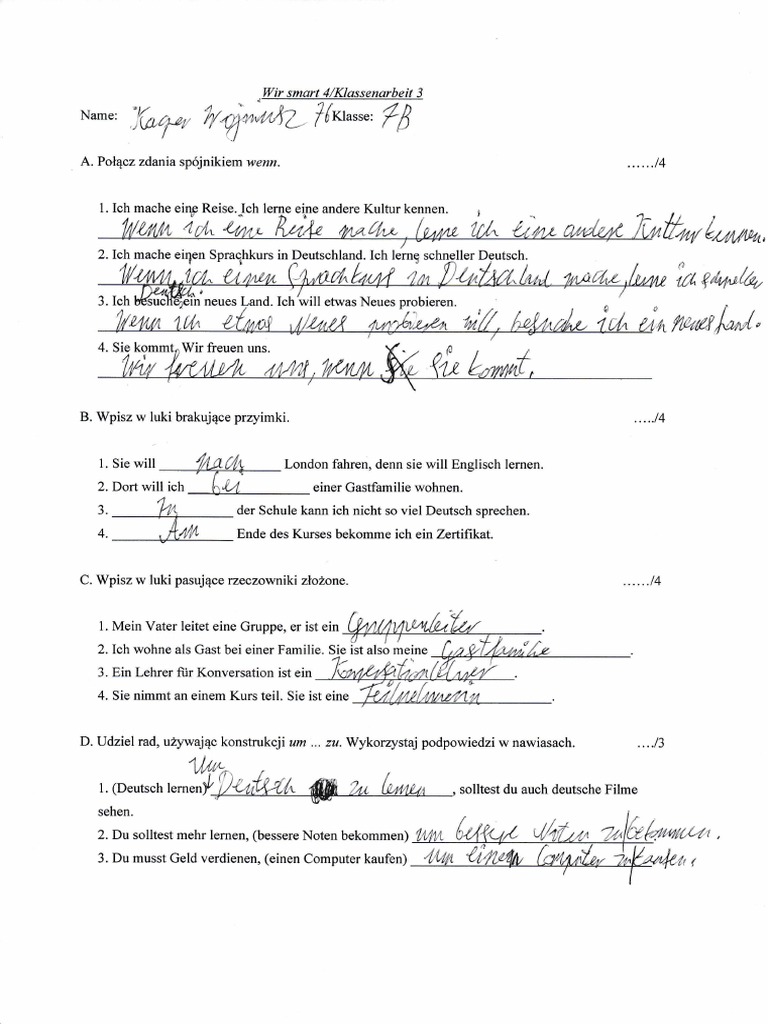 Wir smart 4/Klassenarbeit 3
Name: Kacper 76 Klasse: 7B
A. Połącz zdania spójnikiem wenn. ....../4
1. Ich mache eine Reise. Ich lerne eine andere Kultur kennen.
Wenn ich eine Reise mache, lerne ich eine andere Kultur kennen.
2. Ich mache einen Sprachkurs in Deutschland. Ich lerne schneller Deutsch.
Wenn ich einen Sprachkurs in Deutschland mache, lerne ich schneller
Deutsch.
3. Ich besuche ein neues Land. Ich will etwas Neues probieren.
Wenn ich etwas Neues probieren will, besuche ich ein neues Land.
4. Sie kommt. Wir freuen uns.
Wir freuen uns, wenn Sie kommt.
B. Wpisz w luki brakujące przyimki. ...../4
1. Sie will nach London fahren, denn sie will Englisch lernen.
2. Dort will ich bei einer Gastfamilie wohnen.
3. In der Schule kann ich nicht so viel Deutsch sprechen.
4. Am Ende des Kurses bekomme ich ein Zertifikat.
C. Wpisz w luki pasujące rzeczowniki złożone. ....../4
1. Mein Vater leitet eine Gruppe, er ist ein Gruppenleiter.
2. Ich wohne als Gast bei einer Familie. Sie ist also meine Gastfamilie.
3. Ein Lehrer für Konversation ist ein
4. Sie nimmt an einem Kurs teil. Sie ist eine
D. Udziel rad, używając konstrukcji um ... zu. Wykorzystaj podpowiedzi w nawiasach. ..../3
Um
1. (Deutsch lernen) Deutsch zu lernen, solltest du auch deutsche Filme
sehen.
2. Du solltest mehr lernen, (bessere Noten bekommen) um bessere Noten zu bekommen.
3. Du musst Geld verdienen, (einen Computer kaufen) um einen Computer zu kaufen.